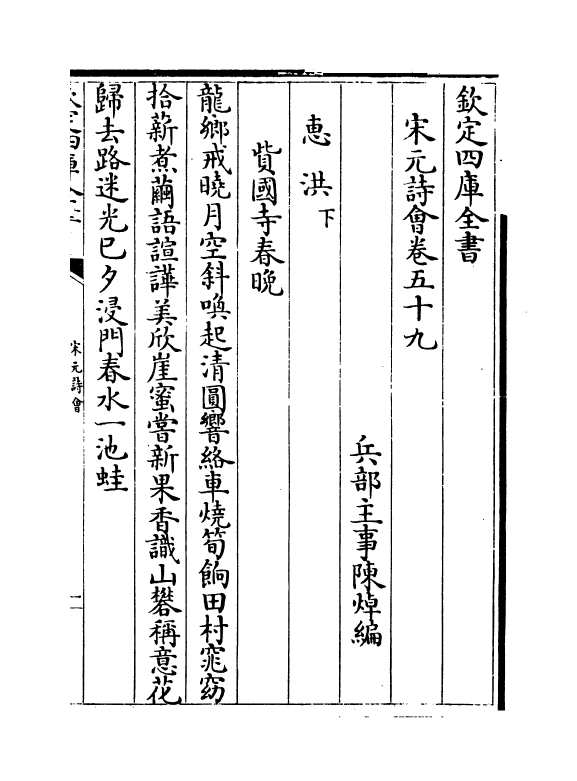 欽定四庫全書
宋元詩會卷五十九
兵部主事陳焯編
惠洪下
貲國寺春晚
龍鄉戒曉月空斜喚起清圓響絡車燒筍餉田村窕窈
拾薪煮繭語諠譁美欣崖蜜嘗新果香識山礬稱意花
歸去路迷光已夕浸門春水一池蛙
宋元詩會